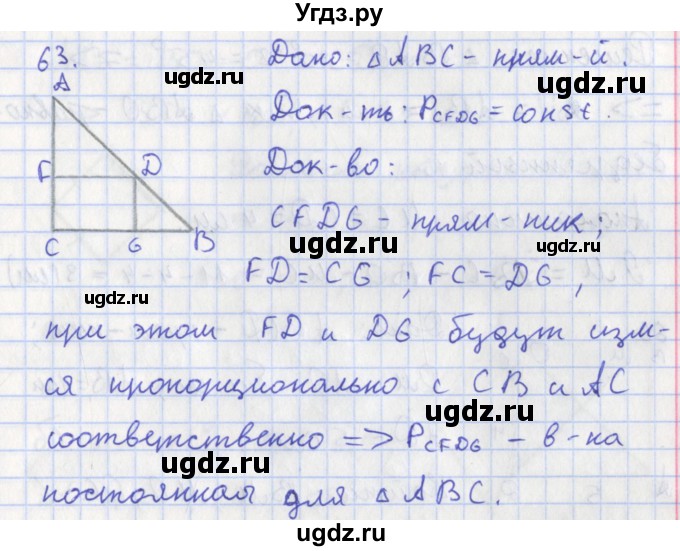 Угдз.ру
63.
Дано: △ABC - прям-й.
gdz.ru
A
Док-ть: P_CFDG = const.
gdz.ru
F D
Док-во:
CFDG - прям-ник;
C G B
gdz.ru
FD = CG ; FC = DG ,
gdz.ru
при этом FD и DG будут изм-
ся пропорционально с CB и AC
gdz.ru
соответственно => P_CFDG - в-на
gdz.ru
постоянная для △ABC.
gdz.ru